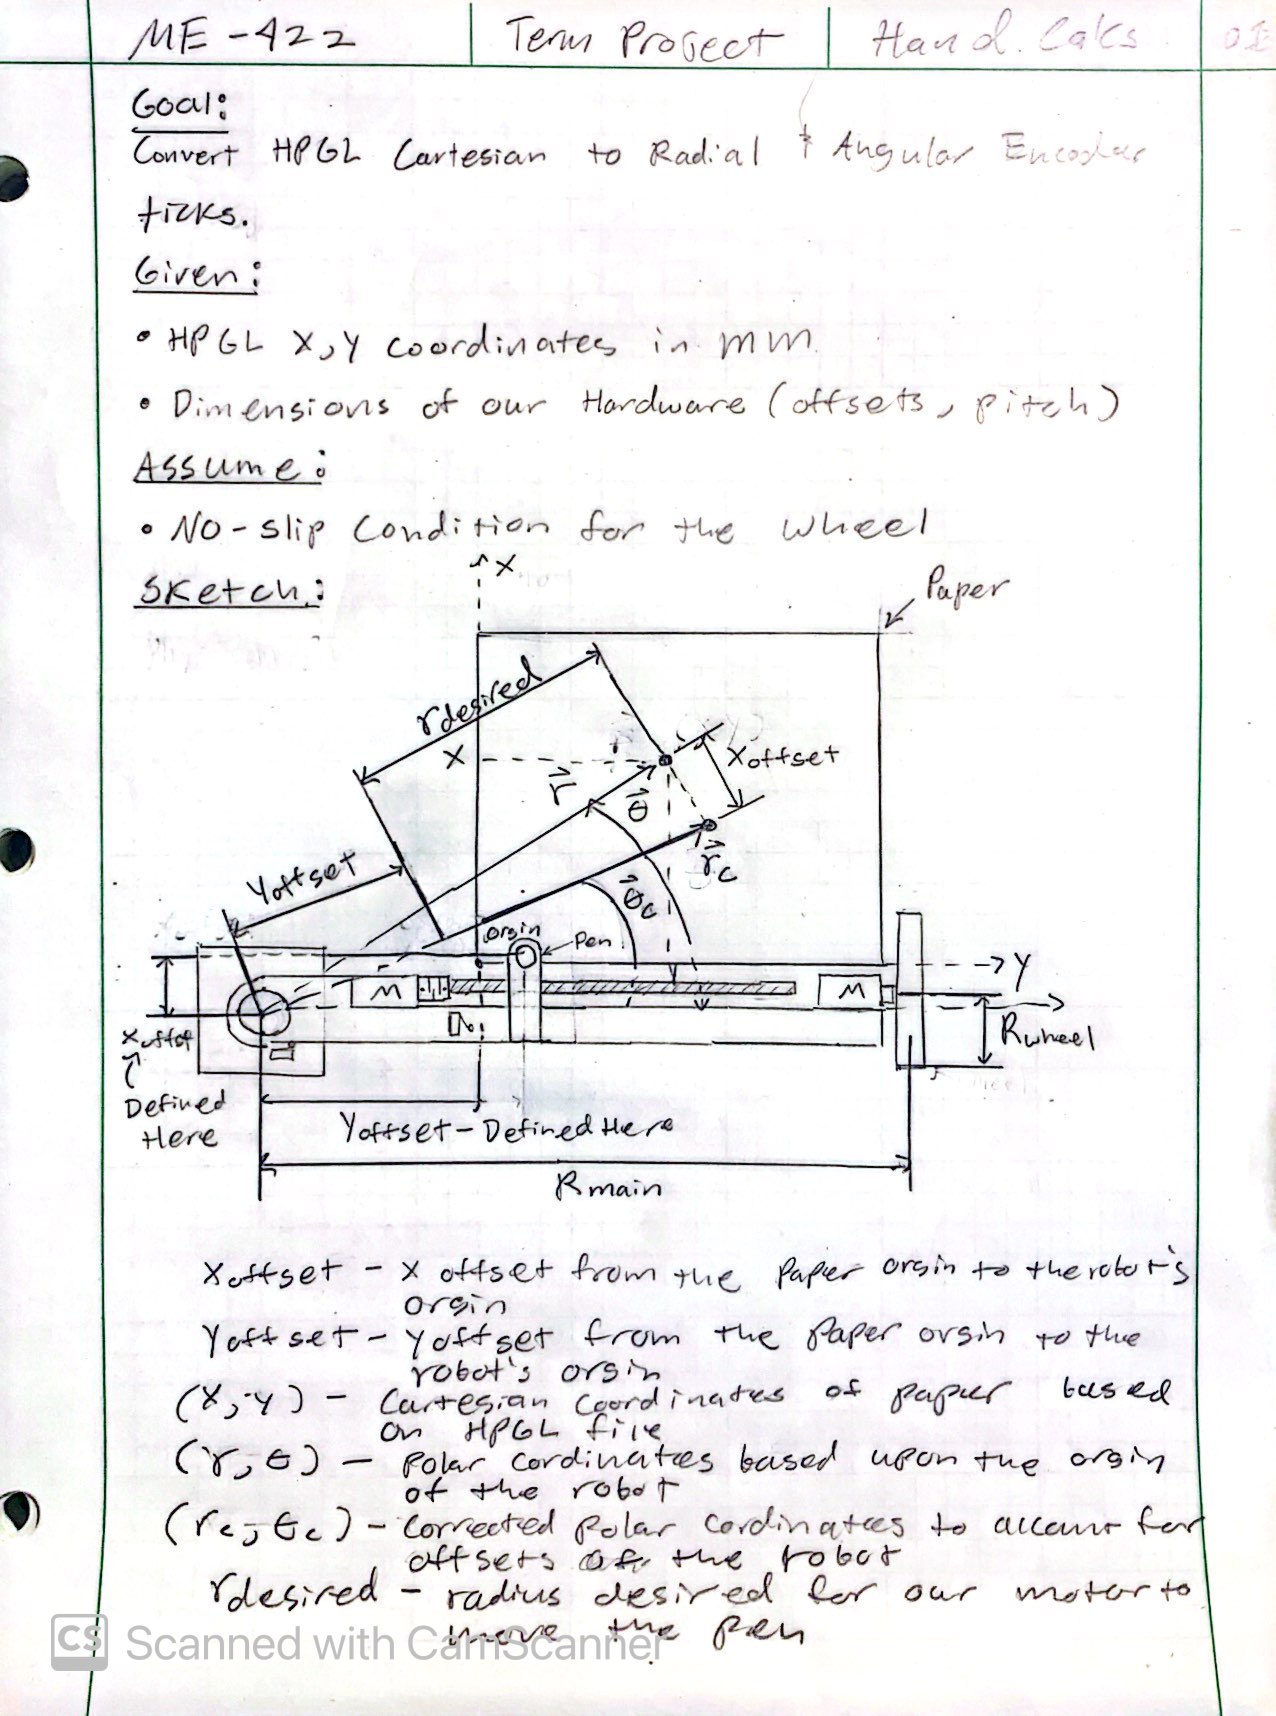 ME-422 Term Project Hand Calcs
Goal:
Convert HPGL Cartesian to Radial & Angular Encoder
ticks.
Given:
• HPGL X,Y coordinates in mm
• Dimensions of our Hardware (offsets, pitch)
Assume:
• No-slip Condition for the wheel
Sketch:
X
Paper
rdesired
X
Xoffset
r
θ
Yoffset
rc
θc
orgin
Pen
Y
Y
M
M
Rwheel
Xoffset
Defined
Here
Yoffset - Defined Here
Rmain
Xoffset - X offset from the Paper orgin to the robot's
orgin
Yoffset - Y offset from the Paper orgin to the
robot's orgin
(X,Y) - Cartesian Coordinates of paper based
on HPGL file
(r,θ) - Polar cordinates based upon the orgin
of the robot
(rc,θc) - Corrected Polar Cordinates to account for
offsets of the robot
rdesired - radius desired for our motor to
move the pen
CS Scanned with CamScanner